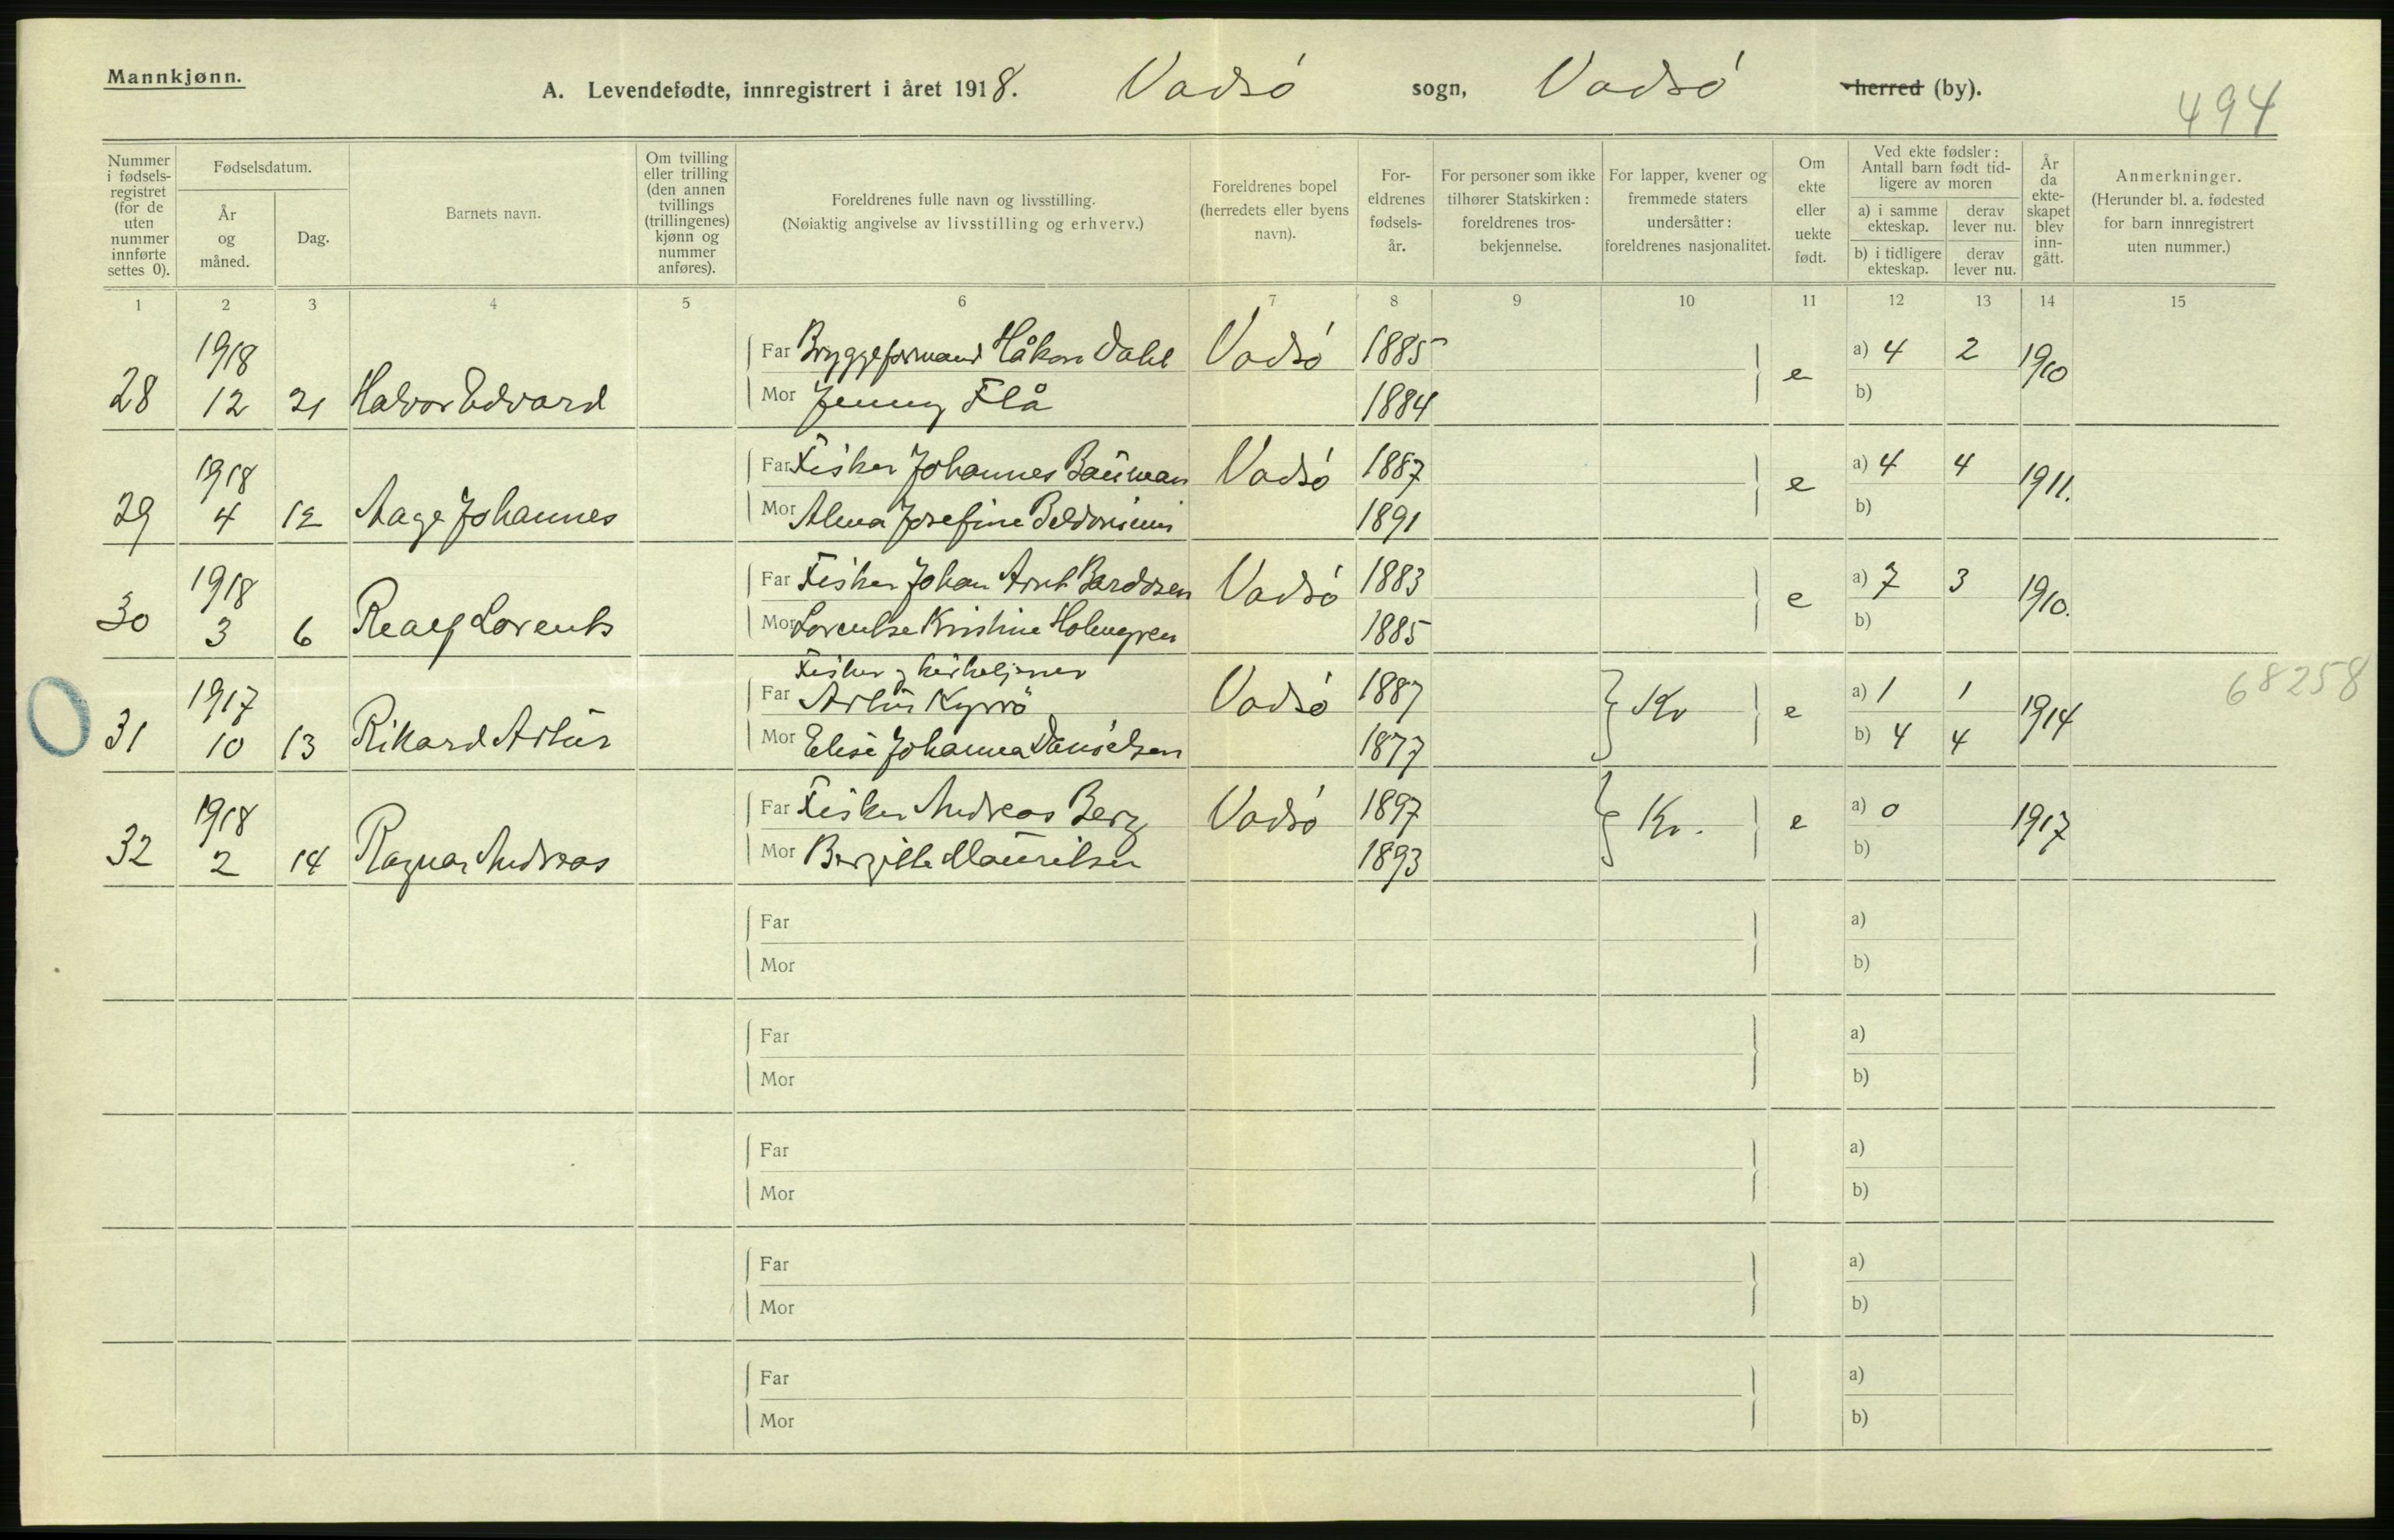 Mannkjønn.
A. Levendefødte, innregistrert i året 1918. Vadsø sogn, Vadsø herred (by).
494
Nummer i fødselsregistret (for de uten nummer innførte settes 0).
Fødselsdatum.
År og måned.
Dag.
Barnets navn.
Om tvilling eller trilling (den annen tvillings (trillingenes) kjønn og nummer anføres).
Foreldrenes fulle navn og livsstilling.
(Nøiaktig angivelse av livsstilling og erhverv.)
Foreldrenes bopel (herredets eller byens navn).
Foreldrenes fødselsår.
For personer som ikke tilhører Statskirken: foreldrenes trosbekjennelse.
For lapper, kvener og fremmede staters undersåtter: foreldrenes nasjonalitet.
Om ekte eller uekte født.
Ved ekte fødsler: Antall barn født tidligere av moren
a) i samme ekteskap.
derav lever nu.
b) i tidligere ekteskap.
derav lever nu.
År da ekteskapet blev inngått.
Anmerkninger.
(Herunder bl. a. fødested for barn innregistrert uten nummer.)
1 2 3 4 5 6 7 8 9 10 11 12 13 14 15
1918
Far Bryggeformand Håkon Dahl Vadsø 1885 a) 4 2 1910
28 12 21 Halvor Edvard Mor Jenny Flå 1884 e b)
1918
Far Fisker Johannes Bauman Vadsø 1887 a) 4 4 1911.
29 4 12 Aage Johannes Mor Alma Josefine 1891 e b)
1918
Far Fisker Johan Arnt Bardosen Vadsø 1883 a) 7 3 1910.
30 3 6 Lorents Mor Lorentse Kristine Holmgren 1885 e b)
Fisker og
1917 Far Artur Kyrrö Vadsø 1887 Kv e a) 1 1 1914 68258
31 10 13 Rikard Artur Mor Elise Johanna Danielsen 1877 b) 4 4
1918 Far Fisker Andreas Berg Vadsø 1897 Kv. e a) 0 1917
32 2 14 Ragnar Andreas Mor Bergitte Mauritsen 1893 b)
Far a)
Mor b)
Far a)
Mor b)
Far a)
Mor b)
Far a)
Mor b)
Far a)
Mor b)